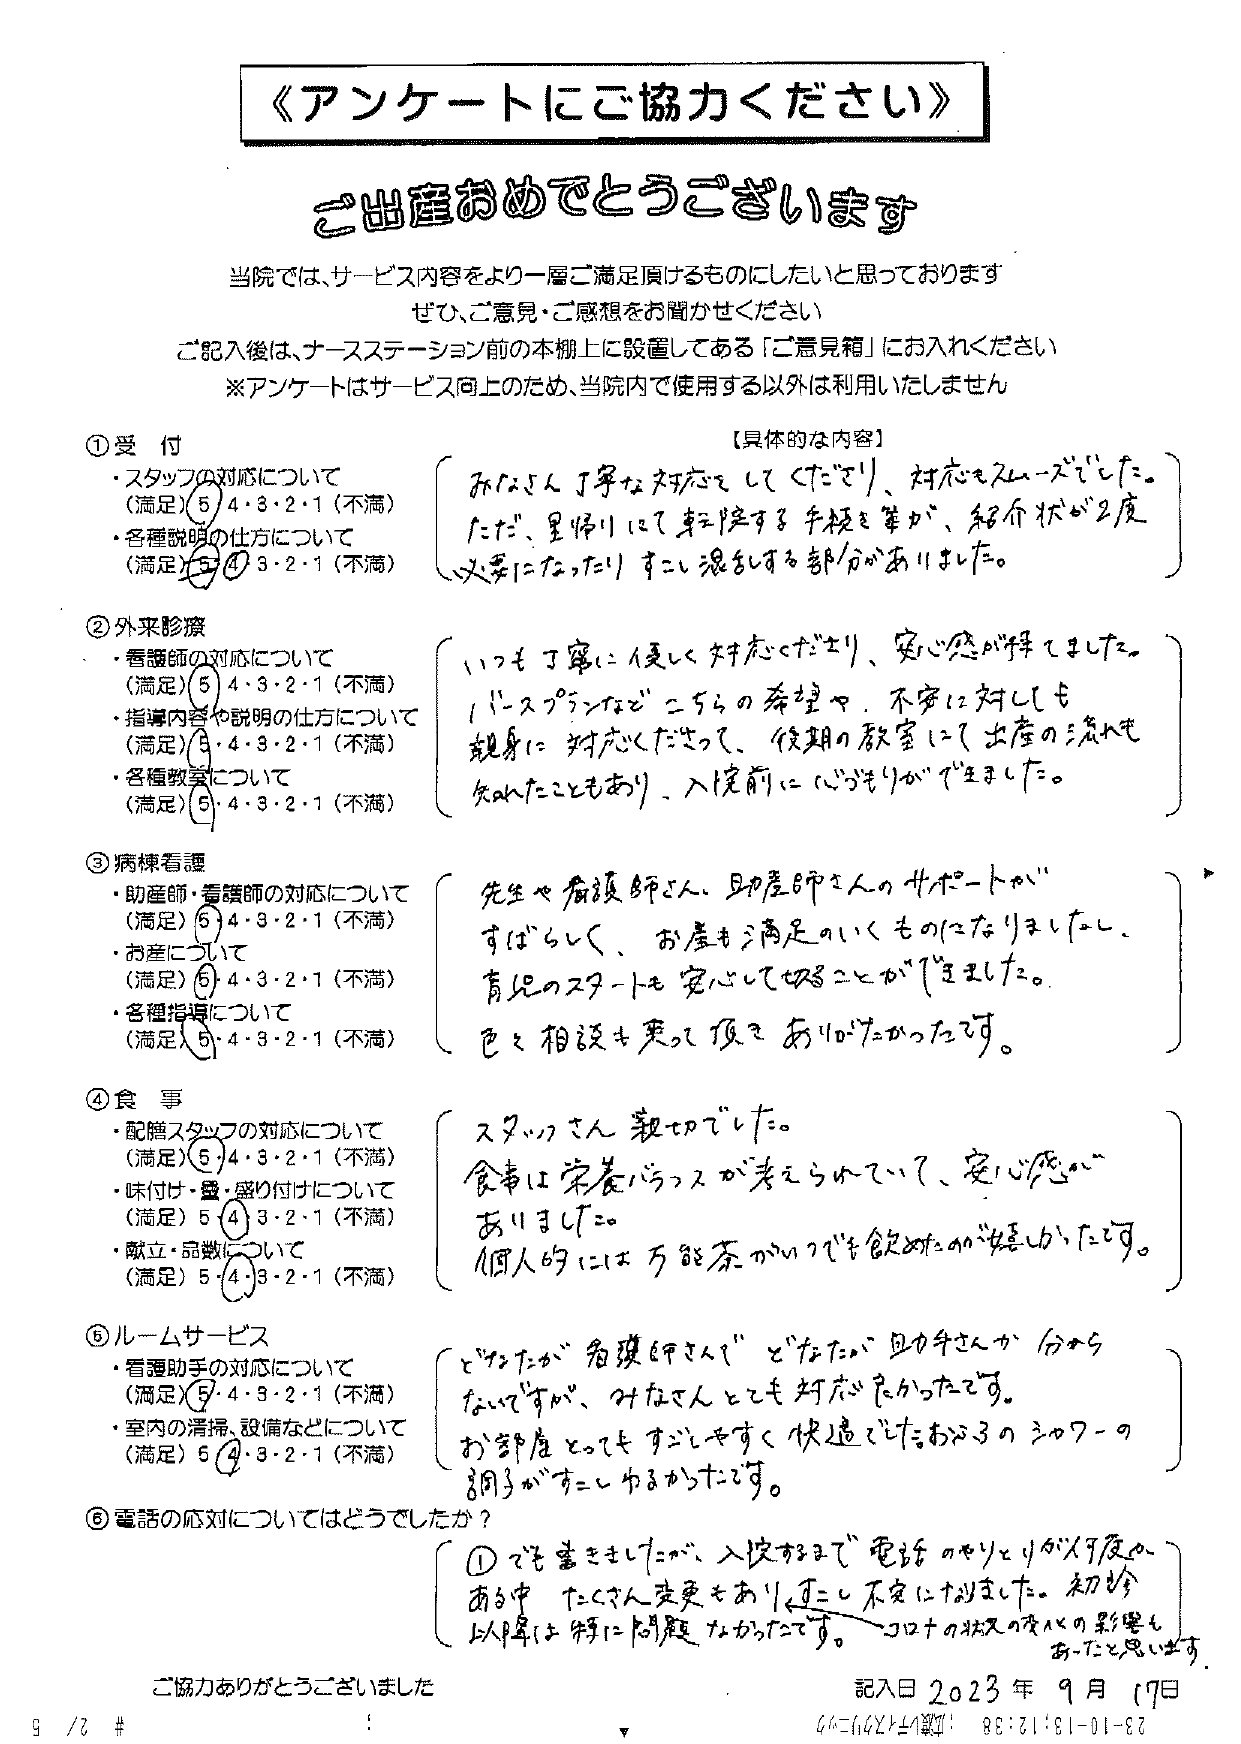 《アンケートにご協力ください》
ご出産おめでとうございます
当院では、サービス内容をより一層ご満足頂けるものにしたいと思っております
ぜひ、ご意見・ご感想をお聞かせください
ご記入後は、ナースステーション前の本棚上に設置してある「ご意見箱」にお入れください
※アンケートはサービス向上のため、当院内で使用する以外は利用いたしません
【具体的な内容】
①受　付
・スタッフの対応について
（満足）5・4・3・2・1（不満）
・各種説明の仕方について
（満足）5・4・3・2・1（不満）
みなさん丁寧な対応をしてくださり、対応もスムーズでした。
ただ、里帰りにて転院する手続き等が、紹介状が2度
必要になったりすこし混乱する部分がありました。
②外来診療
・看護師の対応について
（満足）5・4・3・2・1（不満）
・指導内容や説明の仕方について
（満足）5・4・3・2・1（不満）
・各種教室について
（満足）5・4・3・2・1（不満）
いつも丁寧に優しく対応くださり、安心感が得てました。
バースプランなどこちらの希望や、不安に対しても
親身に対応くださって、後期の教室にて出産の流れも
知れたこともあり、入院前に心づもりができました。
③病棟看護
・助産師・看護師の対応について
（満足）5・4・3・2・1（不満）
・お産について
（満足）5・4・3・2・1（不満）
・各種指導について
（満足）5・4・3・2・1（不満）
先生や看護師さん、助産師さんのサポートが
すばらしく、お産も満足のいくものになりましたし、
育児のスタートも安心して切ることができました。
色々相談も乗って頂きありがたかったです。
④食　事
・配膳スタッフの対応について
（満足）5・4・3・2・1（不満）
・味付け・量・盛り付けについて
（満足）5・4・3・2・1（不満）
・献立・品数について
（満足）5・4・3・2・1（不満）
スタッフさん親切でした。
食事は栄養バランスが考えられていて、安心感が
ありました。
個人的には万能茶がいつでも飲めたのが嬉しかったです。
⑤ルームサービス
・看護助手の対応について
（満足）5・4・3・2・1（不満）
・室内の清掃、設備などについて
（満足）5・4・3・2・1（不満）
どなたが看護師さんでどなたが助手さんか分から
ないですが、みなさんとても対応良かったです。
お部屋とってもすごしやすく快適でした。おふろのシャワーの
調子がすこしゆるかったです。
⑥電話の応対についてはどうでしたか？
①でも書きましたが、入院するまで電話のやりとりが何度か
ある中たくさん変更もありすこし不安になりました。初診
以降は特に問題なかったです。
コロナの状況の変化の影響も
あったと思います。
ご協力ありがとうございました
記入日 2023年 9月 17日
23-10-13;12:38 ;広瀬レディスクリニック
# 2/ 5